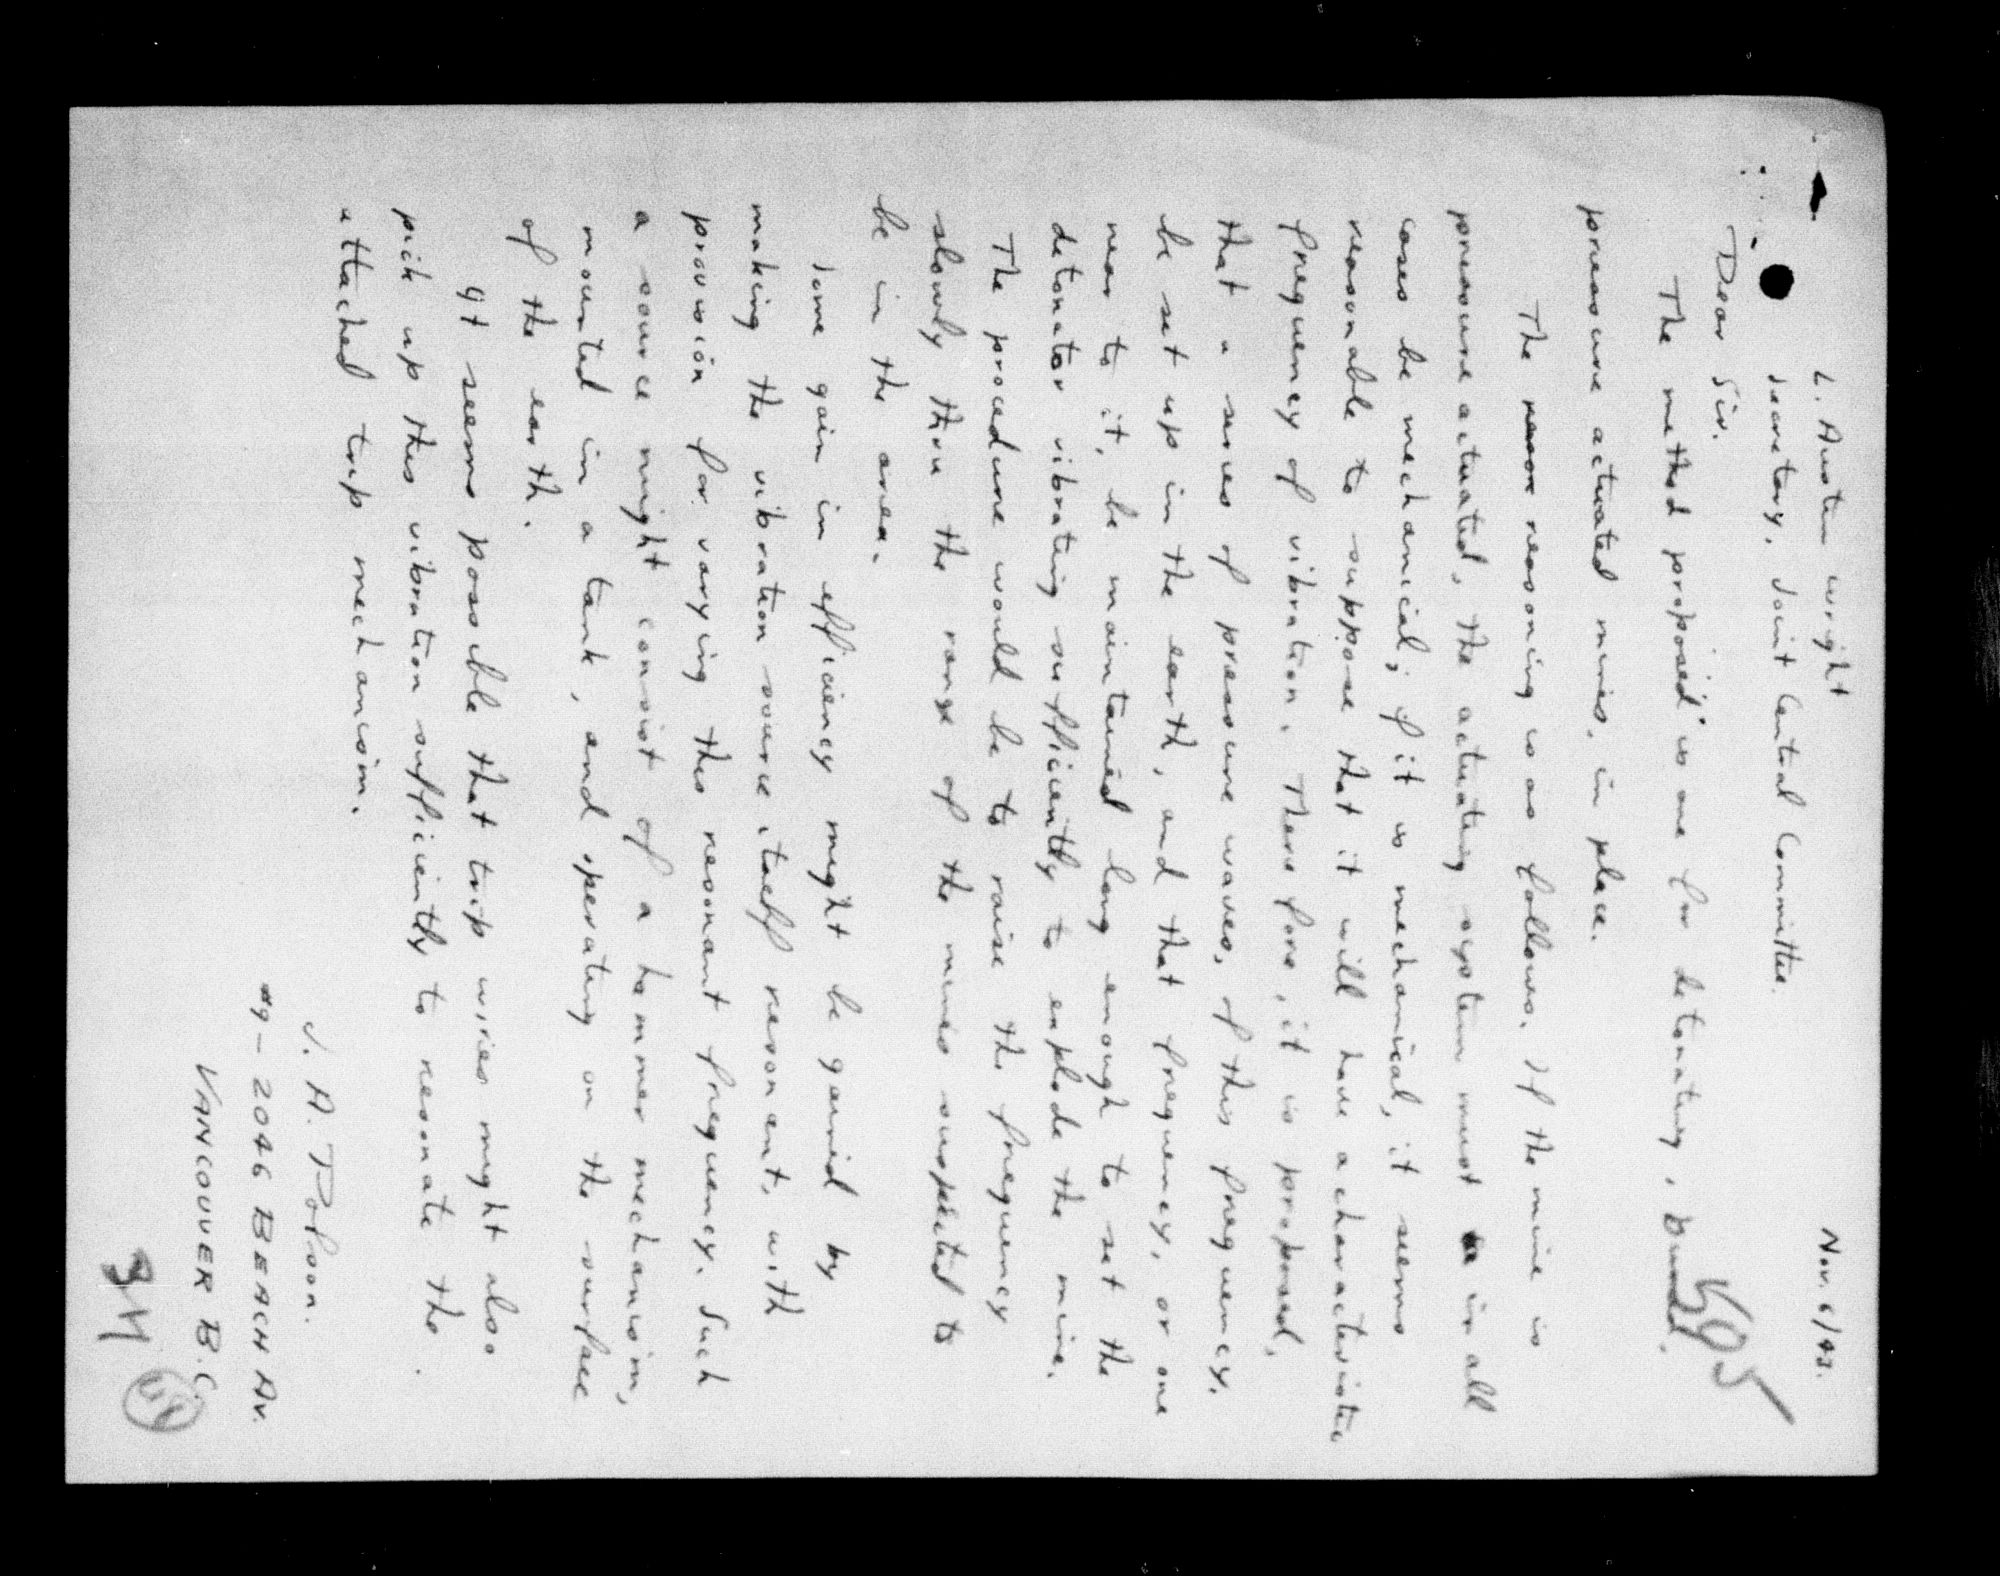 Nov. 6/43.
L. Austin Wright
Secretary, Joint Central Committee.
Dear Sir.
595
The method proposed is one for detonating, buried,
pressure actuated mines, in place.
The reasoning is as follows. If the mine is
pressure actuated, the actuating system must in all
cases be mechanical; if it is mechanical, it seems
reasonable to suppose that it will have a characteristic
frequency of vibration. Therefore, it is proposed,
that a series of pressure waves, of this frequency,
be set up in the earth, and that frequency, or one
near to it, be maintained long enough to set the
detonator vibrating sufficiently to explode the mine.
The procedure would be to raise the frequency
slowly thru the range of the mines suspected to
be in the area.
Some gain in efficiency might be gained by
making the vibration source itself resonant, with
provision for varying this resonant frequency. Such
a source might consist of a hammer mechanism,
mounted in a tank, and operating on the surface
of the earth.
It seems possible that trip wires might also
pick up this vibration sufficiently to resonate the
attached trip mechanism.
J. A.
#9 - 2046 BEACH AV.
VANCOUVER B.C.
34